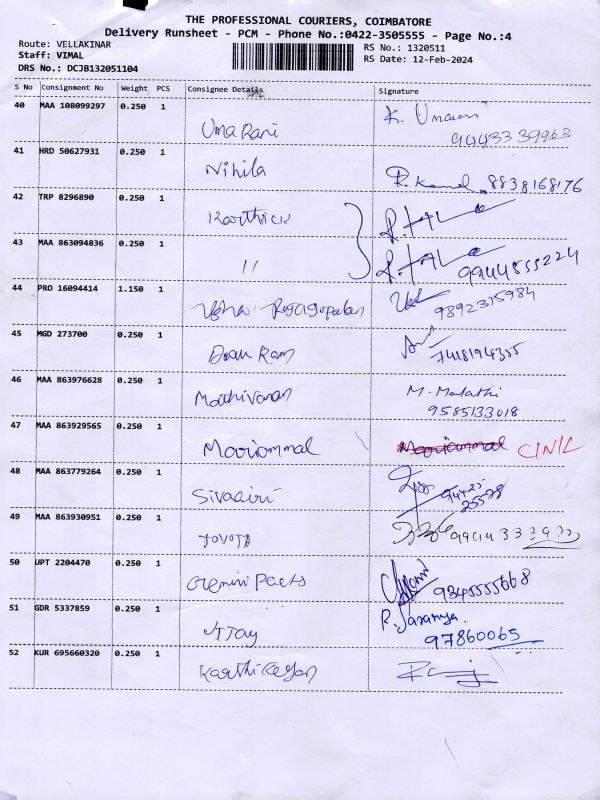 THE PROFESSIONAL COURIERS, COIMBATORE
Delivery Runsheet - PCM - Phone No.:0422-3505555 - Page No.:4
Route: VELLAKINAR
RS No.: 1320511
Staff: VIMAL
RS Date: 12-Feb-2024
DRS No.: DCJB132051104
S No Consignment No Weight PCS Consignee Details Signature
40 MAA 108099297 0.250 1
Uma Rani
K. Umarani
9443339963
41 HRD 50627931 0.250 1
Nihila
R. Kamal 8838168176
42 TRP 8296890 0.250 1
Karthick
43 MAA 863094836 0.250 1
11
9944855224
44 PRO 16094414 1.150 1
Usha Rajagopalan
9892315984
45 MGD 273700 0.250 1
Ram
7418194355
46 MAA 863976628 0.250 1
Mathivanan
M. Malathi
9585133018
47 MAA 863929565 0.250 1
Mariammal
Mariammal
48 MAA 863779264 0.250 1
Sivagiri
94425
25578
49 MAA 863930951 0.250 1
TOYOTA
50 UPT 2204470 0.250 1
Gemini Parts
9345555668
51 GDR 5337859 0.250 1
VIJay
R. Saranya.
97860065
52 KUR 695660320 0.250 1
Karthikeyan